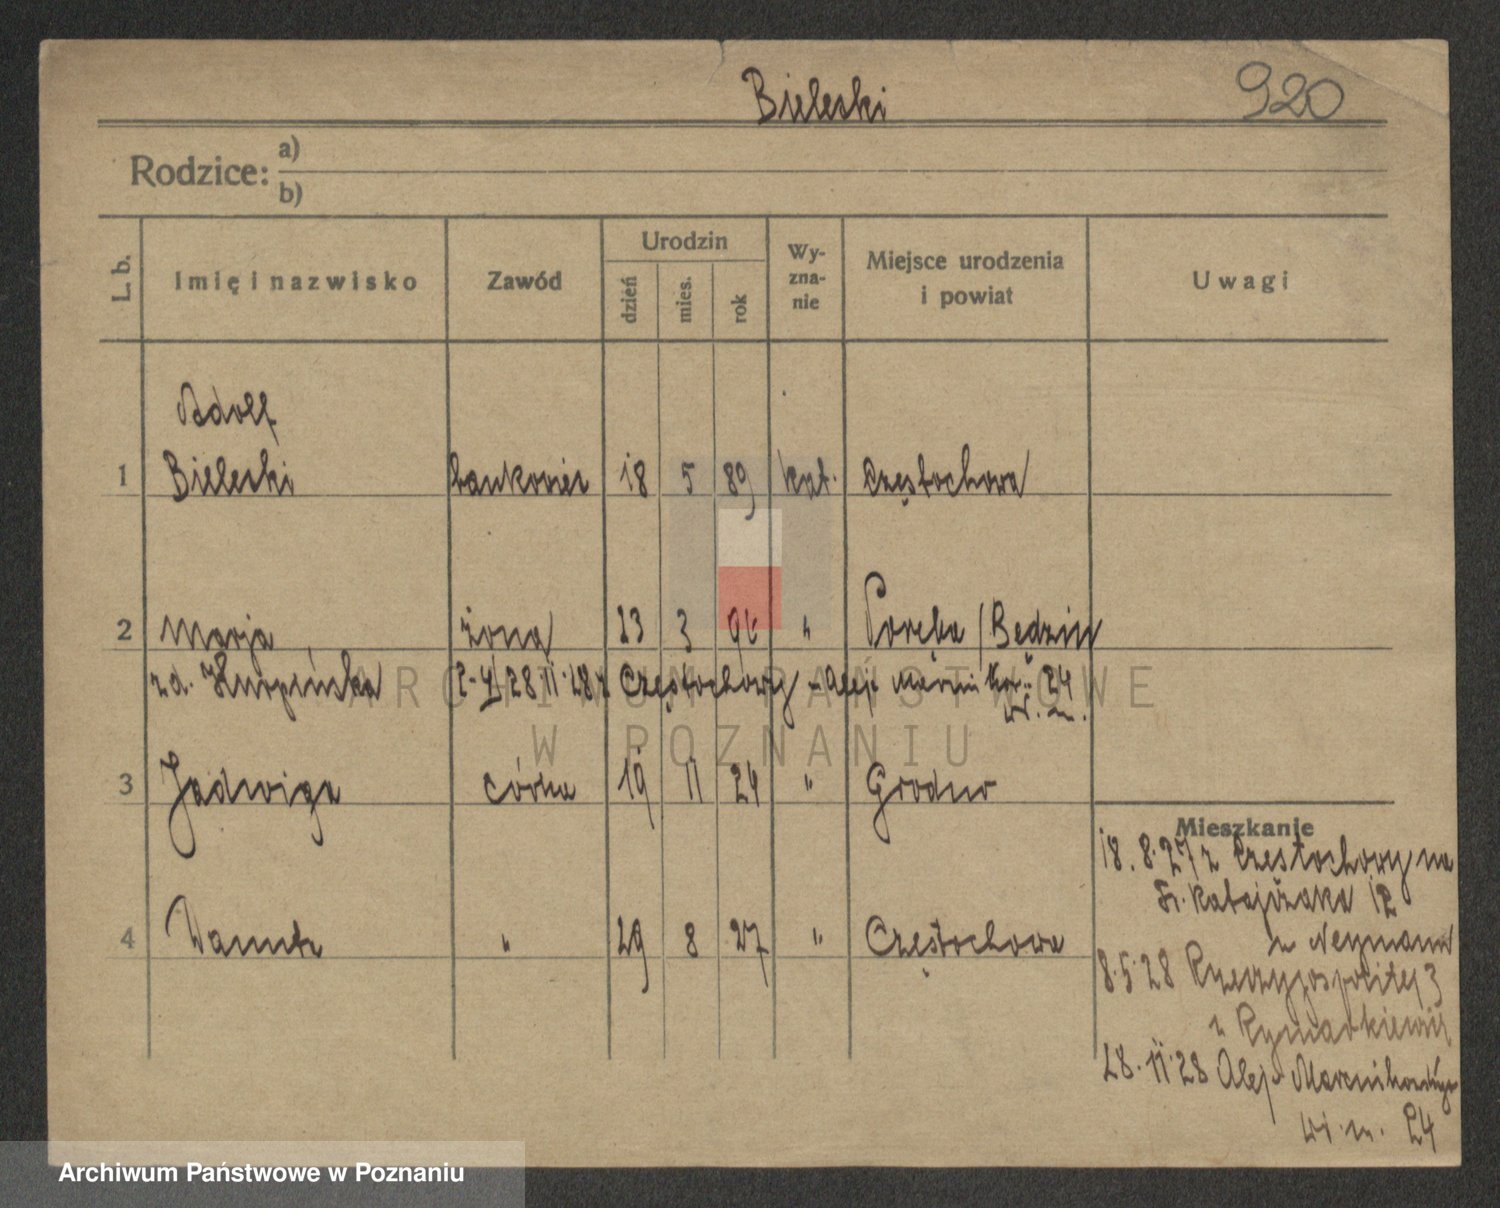 Bieleski 920
Rodzice: a)
b)
L. b. Imię i nazwisko Zawód Urodzin dzień mies. rok Wy-zna-nie Miejsce urodzenia i powiat Uwagi
Adolf
1 Bieleski bankowiec 18 5 89 kat. Częstochowa
2 Marja żona 23 3 96 " Poręba / Będzin
z d. 2-4/28.11.28 z Częstochowy - Alej. Marcinkow. 24
w. m.
3 Jadwiga córka 19 11 24 " Grodno
4 Danuta " 29 8 27 " Częstochowa
Mieszkanie
18.8.27 z Częstochowy na
Fr. Ratajczaka 12
u Neymann
8.5.28 Rzeczypospolitej 3
u Rymarkiewicz
28.11.28 Alej. Marcinkowskiego
w. m. 24
ARCHIWUM PAŃSTWOWE
W POZNANIU
Archiwum Państwowe w Poznaniu